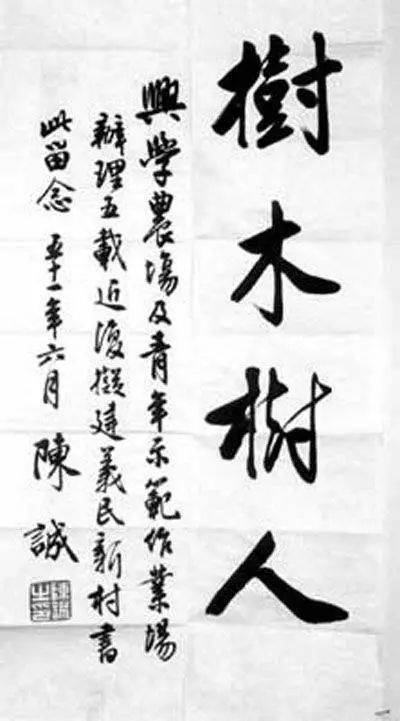 樹木樹人
興學農場及青年示範作業場
辦理五載近復擬建義民新村書
此留念 五十一年六月 陳誠